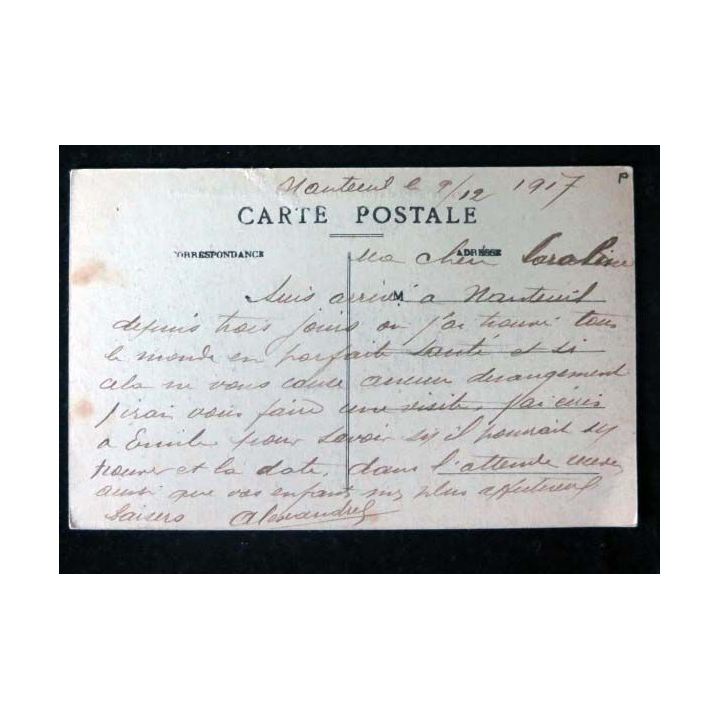 Nanteuil le 9/12 1917 P
CARTE POSTALE
CORRESPONDANCE ADRESSE
Ma cher Caroline
Suis arrivé M a Nanteuil
depuis trois jours ou j'ai trouvé tous
le monde en parfait santé et si
cela ne vous cause aucun derangement
j'irai vous faire une visite. j'ai écris
a Emile pour savoir sy il pourrait sy
trouver et la date. dans l'attende
ainsi que vos enfants mes plus affectueux
baisers Alexandre